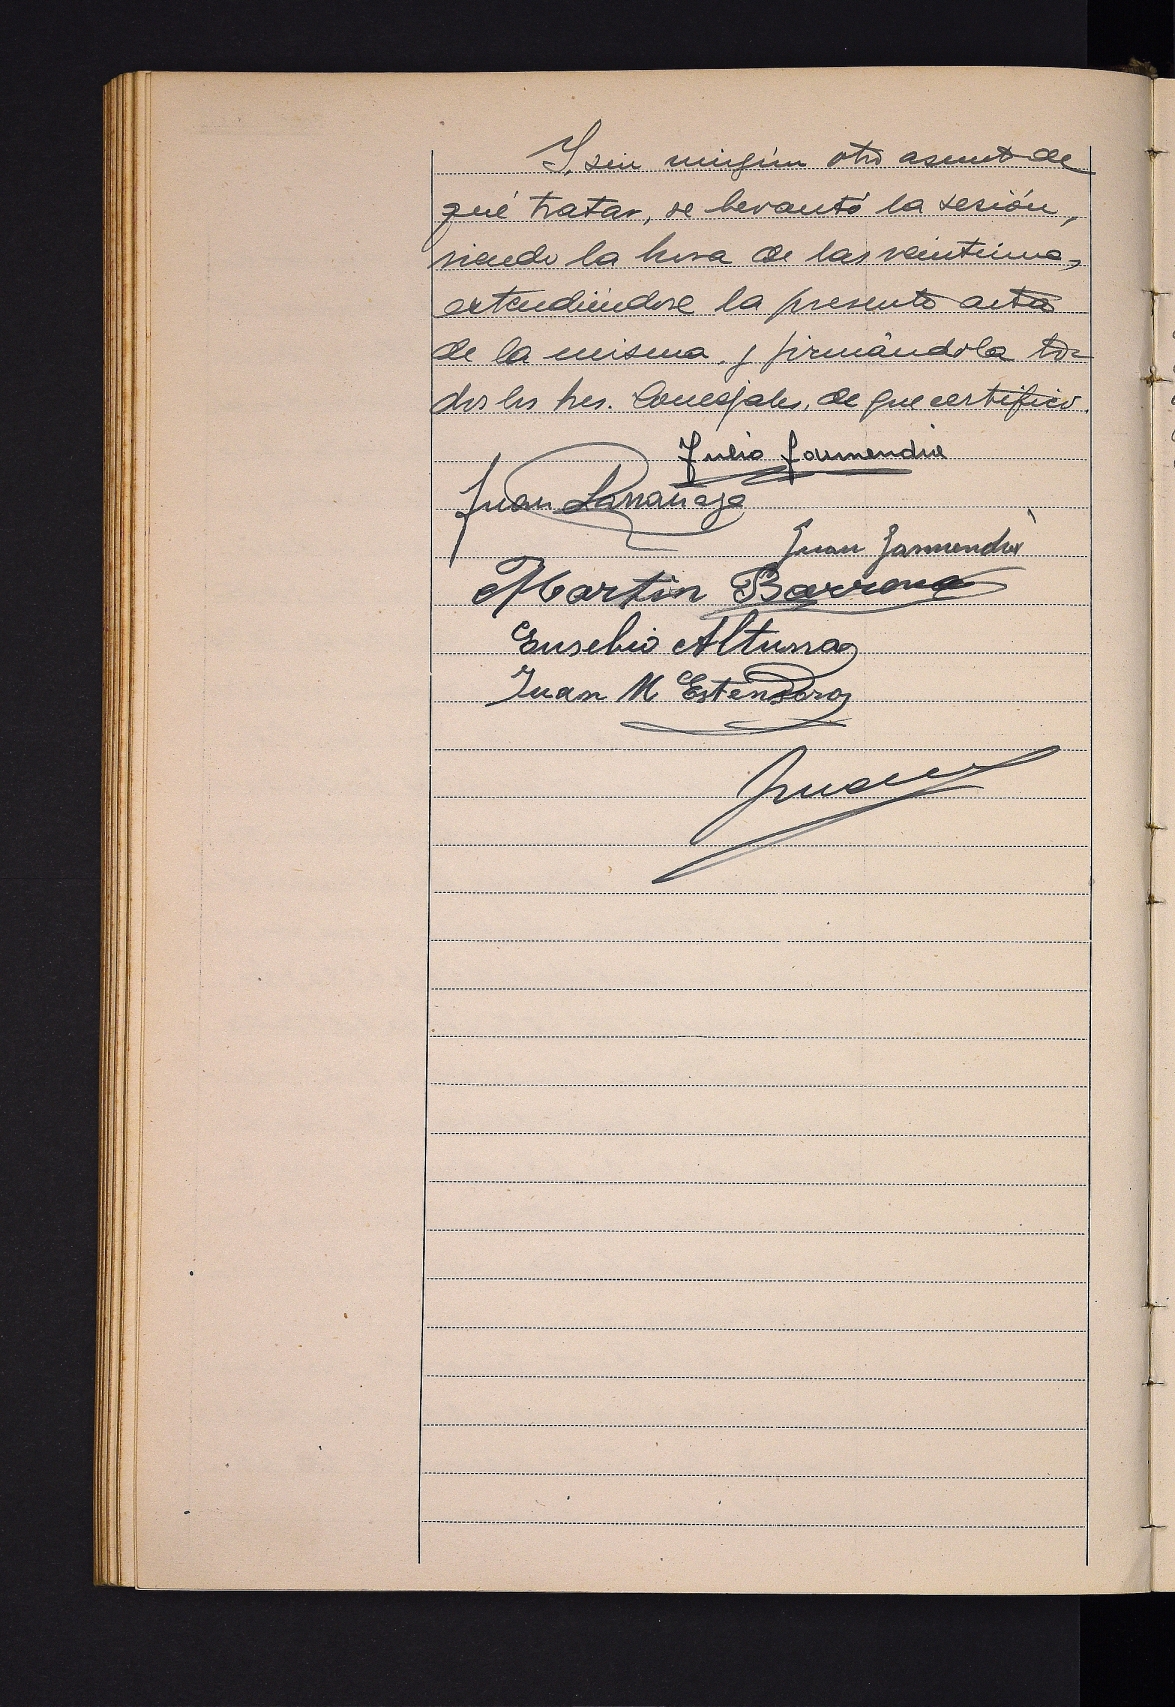 Y, sin ningún otro asunto de
qué tratar, se levantó la sesión,
siendo la hora de las veintiuna,
extendiéndose la presente acta
de la misma, y firmándola to-
dos los Sres. Concejales, de que certifico.
Julio Garmendia
Juan Larrañaga
Juan Garmendia
Martin Barrena
Eusebio Altuna
Juan M Estensoro